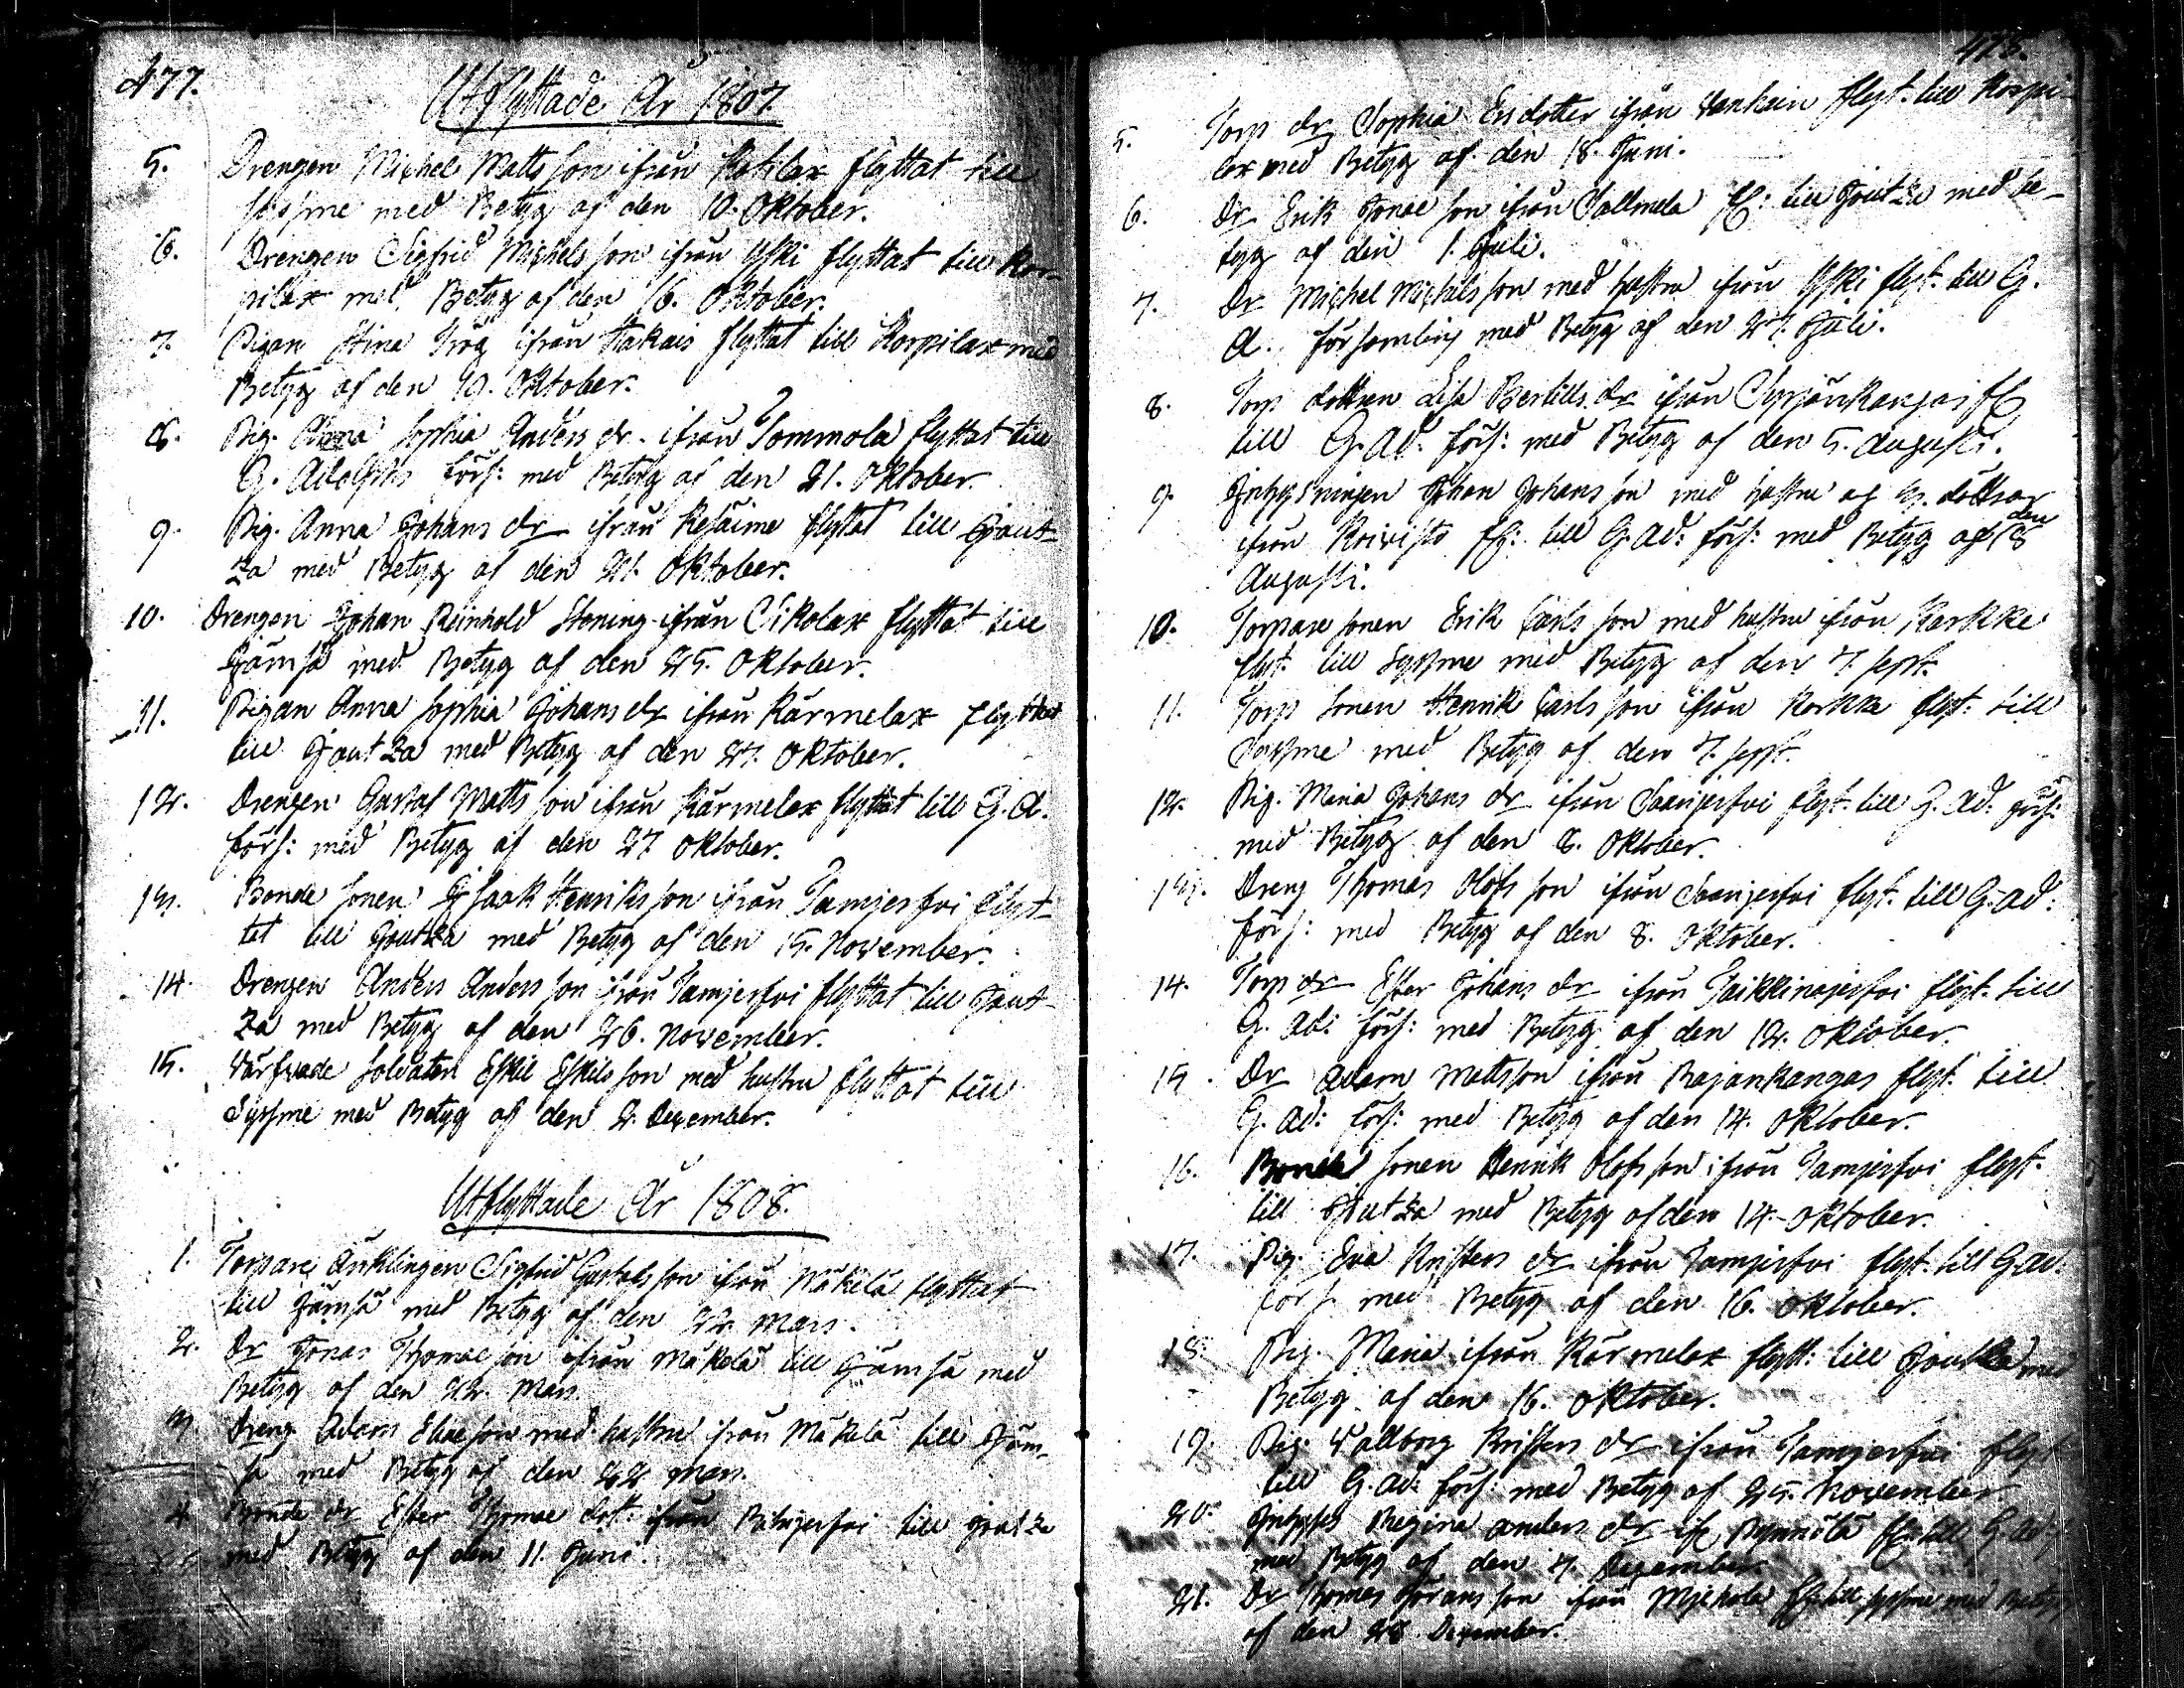 477.
Utflyttade År 1807.
5. Drengen Michel Matts son ifrån Kohilax flyttat till
Syssme med Betyg af den 10. Oktober.
6. Drengen Sigfrid Michels son ifrån Yski flyttat till Kor-
pilax med Betyg af den 16. Oktober.
7. Pigan Stina Trög ifrån Hakais flyttat till Korpilax med
Betyg af den 20. Oktober.
8. Pig. Anna Sophia Anders dr ifrån Tommola flyttat till
G. Adolphs förs: med Betyg af den 21. Oktober.
9. Pig. Anna Johans dr ifrån Kesäime flyttat till Jout-
za med Betyg af den 21. Oktober.
10. Drengen Johan Reinhold Stening ifrån Sikolax flyttat till
Jämsä med Betyg af den 25. Oktober.
11. Pigan Anna Sophia Johans dr ifrån Kärmelax flyttat
till Joutza med Betyg af den 27. Oktober.
12. Drengen Gustaf Matts son ifrån Kärmelax flyttat till G. A.
förs: med Betyg af den 27 Oktober.
13. Bonde sonen Isaak Henriks son ifrån Tamjerfvi flyt-
tet till Joutza med Betyg af den 15. November.
14. Drengen Anders Anders son ifrån Tamjerfvi flyttat till Jout-
za med Betyg af den 26. November.
15. Värfvade Soldaten Eskil Eskils son med hustru flyttat till
Syssme med Betyg af den 2. December.
Utflyttade År 1808.
1. Torpare Änklingen Sigfrid Gustafs son ifrån Mäkelä flyttat
till Jämsä med Betyg af den 22. Mars.
2. Dr Jonas Thomae son ifrån Mäkelä till Jämsä med
Betyg af den 22. Mars.
3. Dreng Adam Eliae son med hustru ifrån Mäkelä till Jäm-
sä med Betyg af den 22 Mars.
4. Bonde dr Ester Thomae dot: ifrån till Joutza
med Betyg af den 11. Juni.
478.
5. Torp dr Sophia Ers dotter ifrån Vanhain flyt. till Korpi-
lax med Betyg af den 18. Juni.
6. Dr Erik Jonae son ifrån Sallmela fl: till Joutza med be-
tyg af den 1. Juli.
7. Dr Michel Michels son med hustru ifrån Yski flyt. till G.
A. församling med Betyg af den 27. Juli.
8. Torp dottren Lisa Bertills dr ifrån Syrjänkangas fl
till G. Ad. förs: med Betyg af den 5. Augusti.
9. Inhysningen Johan Johans son med hustru af 3. döttrar
ifrån Koivisto fl: till G. Ad: förs: med Betyg af den 18
Augusti.
10. Torpare sonen Erik Carls son med hustru ifrån Karkke
flyt. till Syssme med Betyg af den 7. Sept.
11. Torp sonen Henrik Carls son ifrån Korkka flyt. till
Syssme med Betyg af den 7. Sept.
12. Pig. Maria Johans dr ifrån Saanjerfvi flyt. till G. Ad. förs:
med Betyg af den 8. Oktober.
13. Dreng Thomas Olofs son ifrån Saanjerfvi flyt. till G. Ad:
förs: med Betyg af den 8. Oktober.
14. Torp dr Ester Johans dr ifrån Paikkinajerfvi flyt. till
G. Ad: förs: med Betyg af den 12. Oktober.
15. Dr Adam Matts son ifrån Rajankangas flyt. till
G. Ad: förs: med Betyg af den 14. Oktober.
16. Bonde sonen Henrik Olofs son ifrån Tamjerfvi flyt.
till Joutza med Betyg af den 14. Oktober.
17. Pig. Eva Kristers dr ifrån Tamjerfvi flyt. till G. Ad.
förs. med Betyg af den 16. Oktober.
18. Pig. Maria ifrån Kärmelax flytt: till Joutza med
Betyg af den 16. Oktober.
19. Pig. Vallborg Kristers dr ifrån Tamjerfvi flyt
till G. Ad: förs: med Betyg af 25. November
20. Inhyses Regina Anders dr if. fl. till G. Ad:
med Betyg af den 7. December.
21. Dr Thomas Görans son ifrån fl. till Syssme med Betyg
af den 28 December.